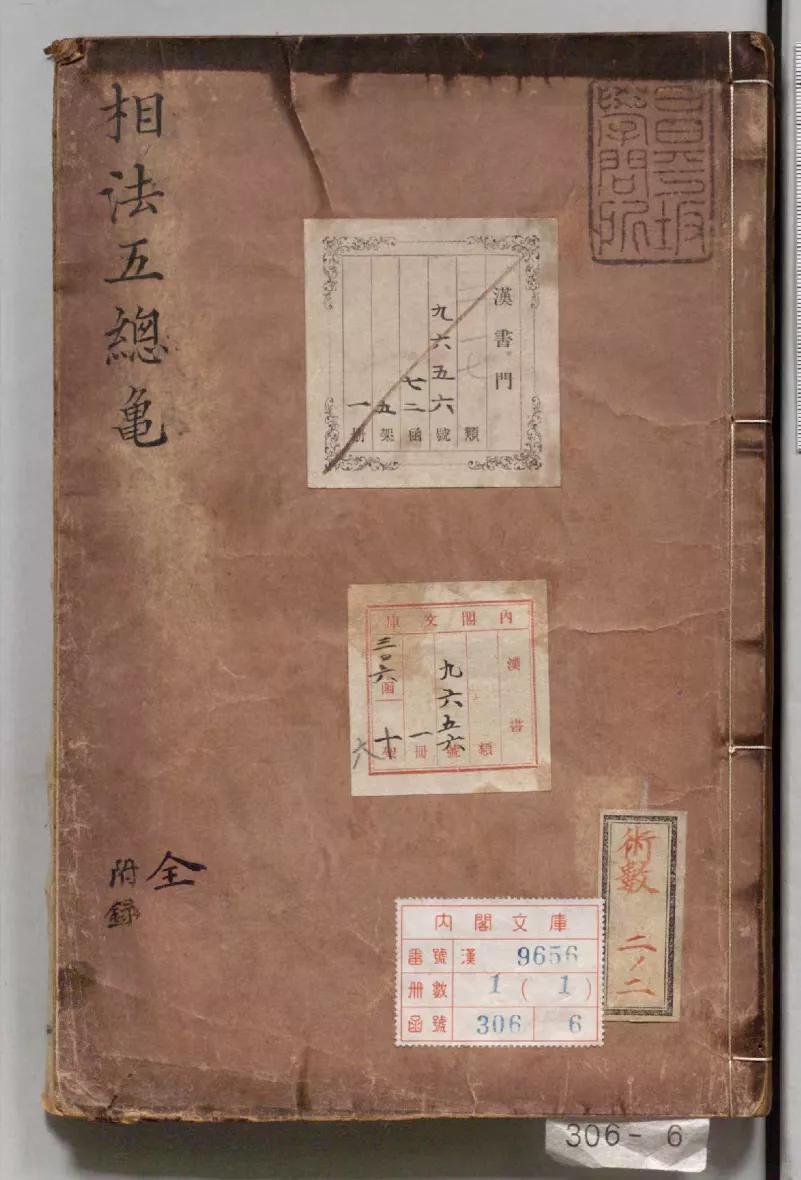 相法五總亀
全
附録
昌平坂
學問所
漢書門
類
九六五六號
七二函
五架
一冊
內閣文庫
漢書
類
九六五六號
一冊
三〇六函
十架
六
術數
二ノ二
內閣文庫
番號 漢 9656
冊數 1 ( 1 )
函號 306 6
306- 6